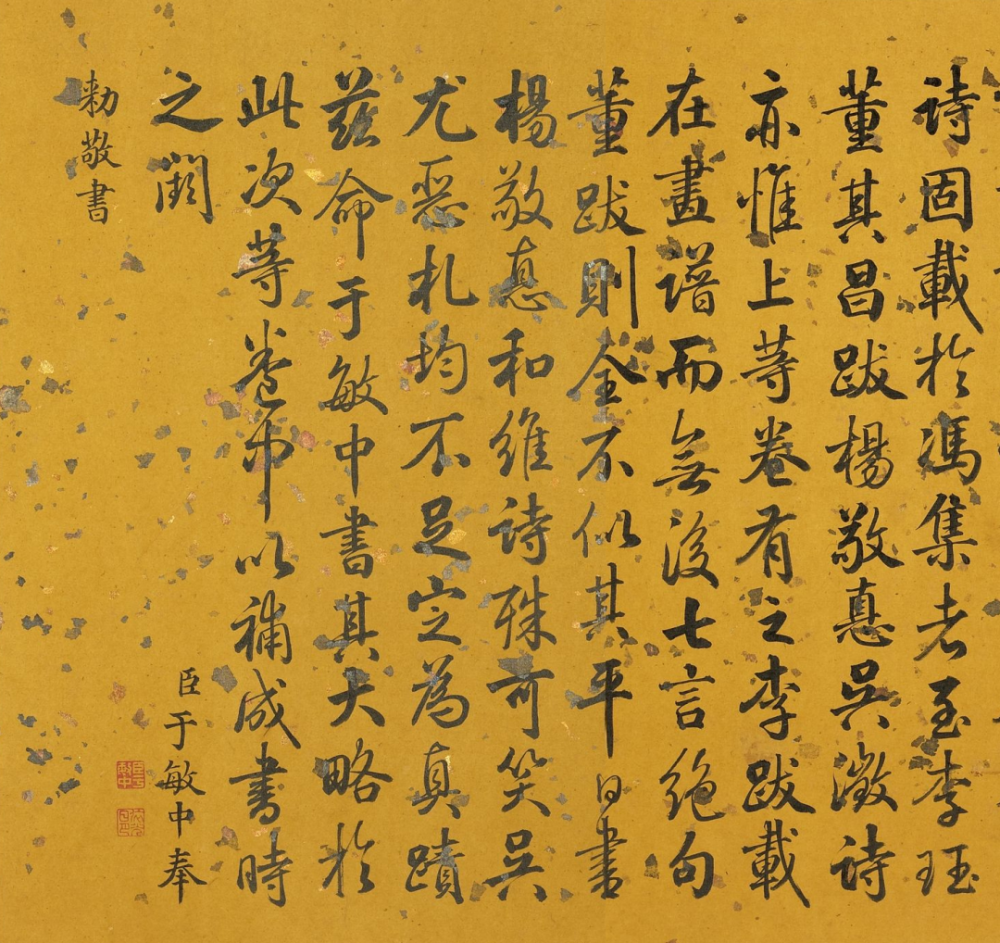 詩固載於馮集老至李珏
董其昌跋楊敬惪吳澂詩
亦惟上等卷有之李跋載
在畫譜而無後七言絕句
董跋則全不似其平日書
楊敬惪和維詩殊可笑吳
尤惡札均不足定為真蹟
茲命于敏中書其大略於
此次等卷中以補成書時
之闕
臣于敏中奉
勅敬書